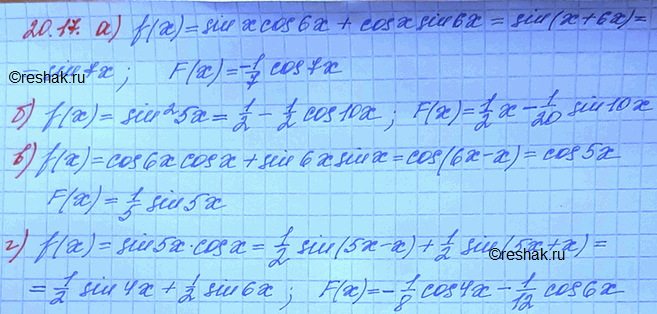 20.17. а) f(x)=sin x cos6x + cosx sin6x = sin(x+6x)=
= sin7x; F(x)=-1/7 cos7x
©reshak.ru
б) f(x)= sin²5x= 1/2 - 1/2 cos10x; F(x)= 1/2 x - 1/20 sin10x
в) f(x)=cos6x cosx + sin6x sinx=cos(6x-x)=cos5x
F(x)= 1/5 sin5x
г) f(x)=sin5x·cosx= 1/2 sin(5x-x)+ 1/2 sin(5x+x)=
= 1/2 sin4x + 1/2 sin6x; F(x)=- 1/8 cos4x - 1/12 cos6x
©reshak.ru